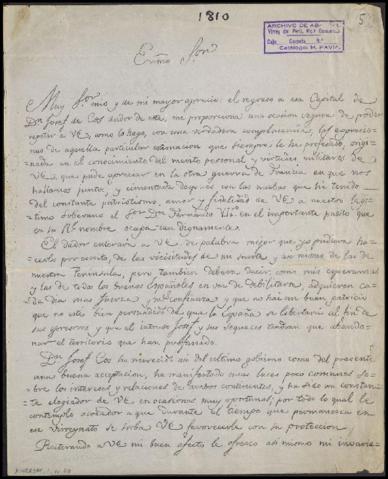 1810
5
ARCHIVO DE
Virrey del Perú,
Caja Carpeta 4ª
Catálogo M. PAVIA
Exmo Sor.
Muy Sor. mio y de mi mayor aprecio: el regreso a esa Capital de
Dn Josef de Cos dador de esta, me proporciona una ocasion segura de poder
repetir a VE, como lo hago, con una verdadera complacencia, las expresio-
nes de aquella particular estimacion que siempre le he profesado, origi-
nada en el conocimiento del merito personal y virtudes militares de
VE que pude apreciar en la otra guerra de Francia en que nos
hallamos juntos, y cimentada despues con las pruebas que he tenido
del constante patriotismo, amor y fidelidad de VE a nuestro legi-
timo soberano el Sor Dn Fernando 7º. en el importante puesto que
en su Rl nombre ocupa tan dignamente.
El dador enterará a VE de palabra mejor que yo pudiera ha-
cerlo por escrito, de las vicisitudes de mi suerte y en de las de
nuestra Peninsula, pero tambien deberá decir como mis esperanzas
y las de todos los buenos Españoles en vez de debilitarse, adquieren ca-
da dia mas fuerza y confianza y que no hay un buen patricio
que no esté bien persuadido de que la España se libertará al fin de
sus y que el intruso Josef y sus sequaces tendran que abando-
nar el territorio que han profanado.
Dn Josef Cos ha merecido asi del ultimo gobierno como del presente
una buena aceptacion, ha manifestado unas luces poco comunes so-
bre los intereses y relaciones de ambos continentes, y ha sido un constan-
te elogiador de VE en ocasiones muy oportunas; por todo lo qual le
contemplo acrehedor a que durante el tiempo que permanezca en
ese virreynato se sirba VE favorecerle con su proteccion.
Reiterando a VE mi buen afecto le ofrezco asi mismo mi invaria-